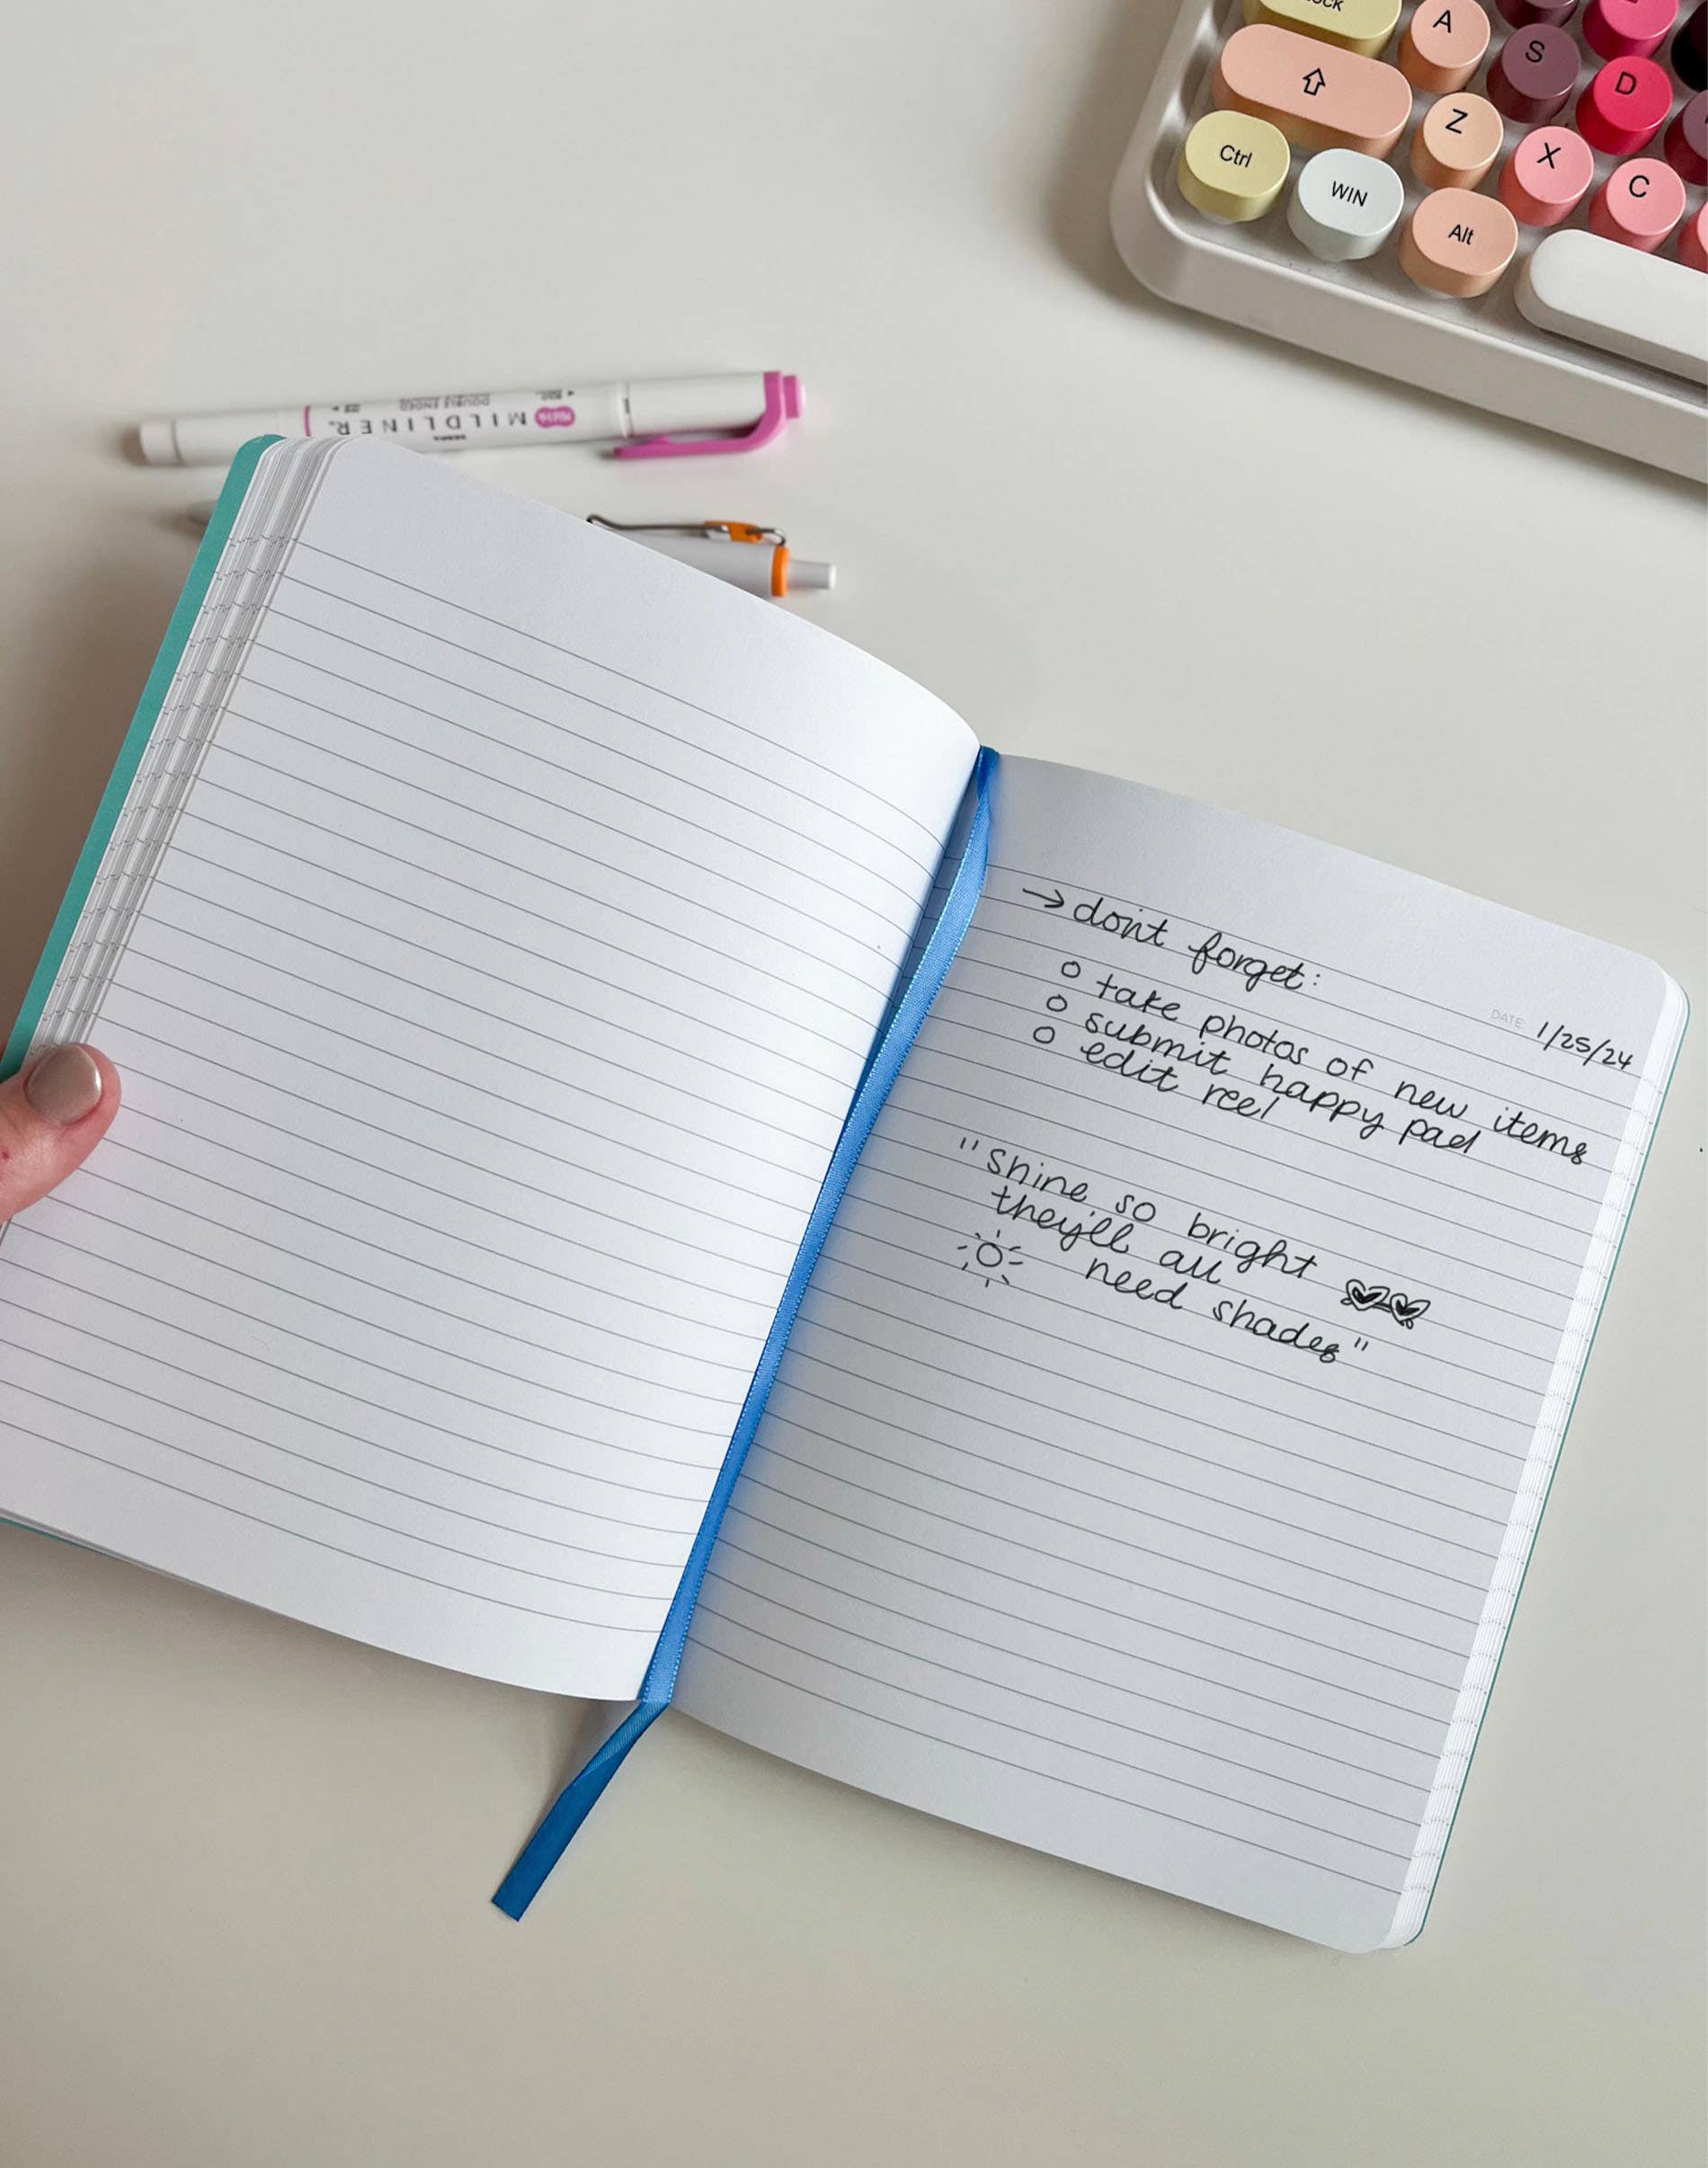 LOCK
A
S
D
Z
X
C
Ctrl
WIN
Alt
MILDLINER
DOUBLE ENDED
ZEBRA
→ don't forget:
DATE: 1/25/24
o take photos of new items
o submit happy pad
o edit reel
"shine so bright
they'll all
need shades"